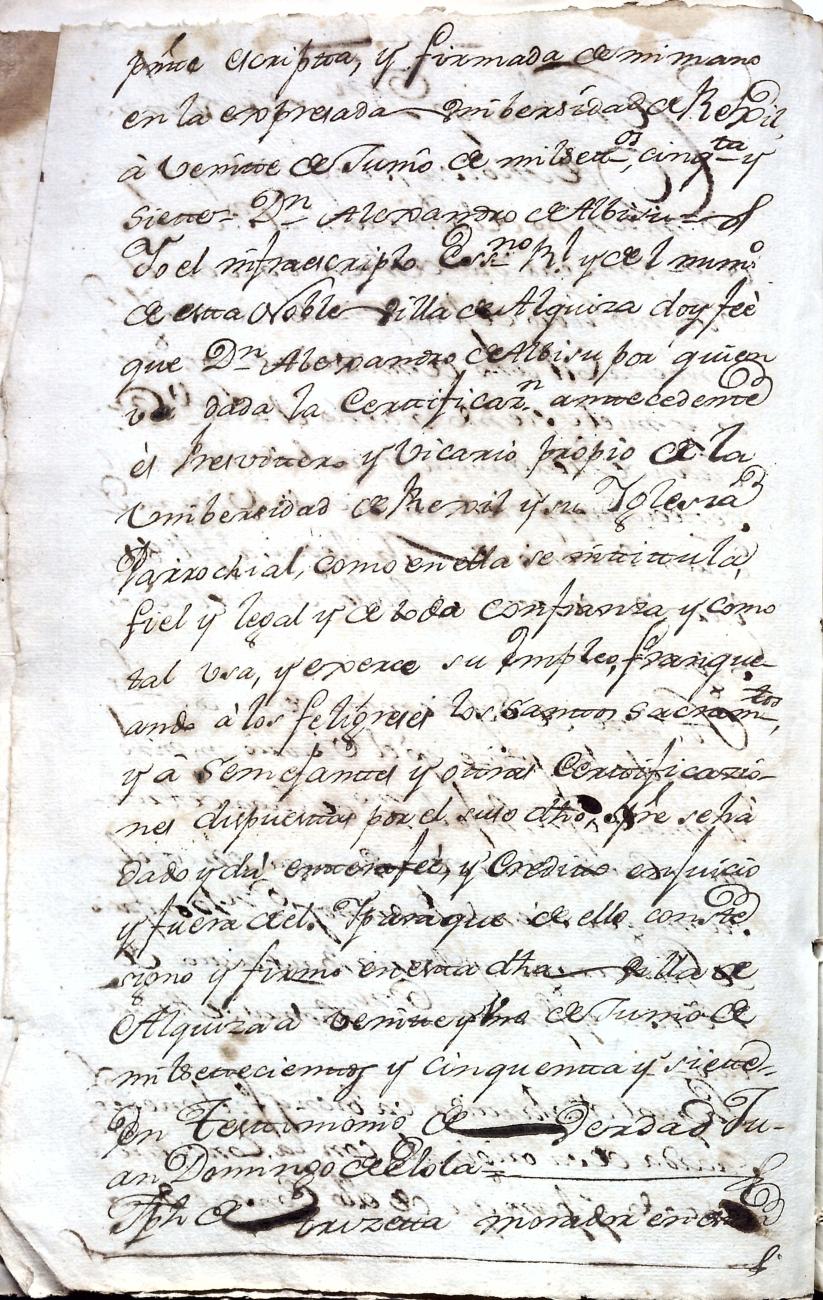 pnte escripta, y firmada de mi mano
en la expresada Unibersidad de Rexil,
à Veintte de Junio de mil settos, cinqta y
siette= Dn Alexandro de Albisu=
Yo el infraescripto Essno Rl y del numo
de estta Noble Villa de Alquiza doy feè
que Dn Alexandro de Albisu por quien
và dada la Certtificazn anttecedentte
és Presvittero y Vicario propio de la
Unibersidad de Rexil y su Yglesia
Parrochial, como en ella se inttittula,
fiel y legal y de toda confianza y como
tal Usa, y exerce su Empleo, franque-
ando à los feligreses los Santtos Sacramtos,
y à Semejanttes y ottras Certtificazio-
nes dispuesttas por el suso dho, spre se hà
dado y dà entterafeè, y Creditto enjuicio
y fuera del. Yparaque de ello constte
signo y firmo en estta dha Villa de
Alquiza à veintte y Uno de Junio de
mil settecienttos y cinquentta y siette=
En Testtimonio de Verdad Ju-
an Domingo de Elola=
Jph de Yruzetta morador en estta